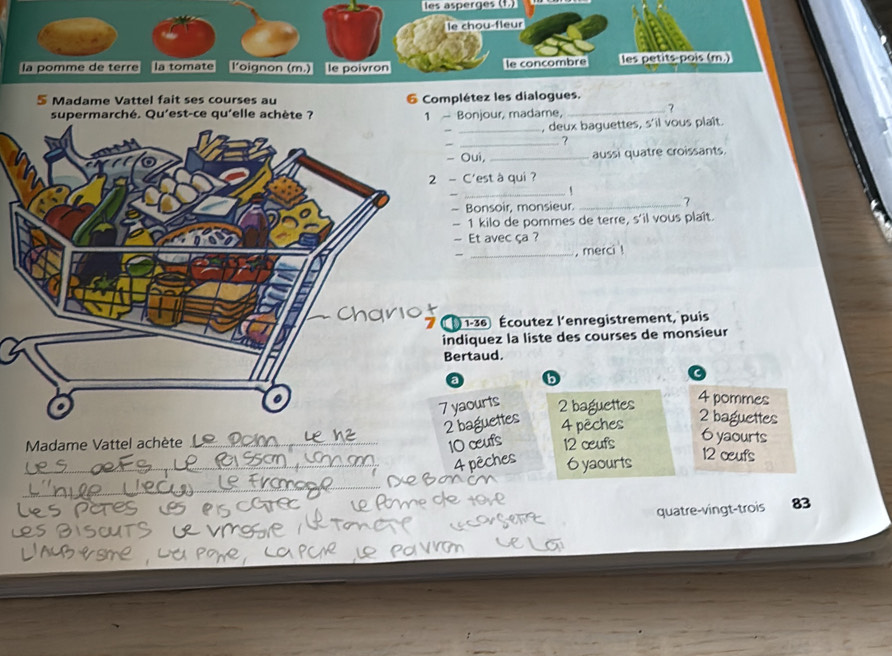 les asperges (f.)
le chou-fleur
la pomme de terre
la tomate
l'oignon (m.)
le poivron
le concombre
les petits-pois (m.)
5 Madame Vattel fait ses courses au
supermarché. Qu'est-ce qu'elle achète ?
Chariot
Madame Vattel achète le pam, le
les, le,
le fromage
Les pates les le Pome de
les
la pome, le pavron
6 Complétez les dialogues.
1 – Bonjour, madame, ______ ?
– ______, deux baguettes, s'il vous plaît.
– ______ ?
– Oui, ______ aussi quatre croissants.
2 – C'est à qui ?
– ______ !
– Bonsoir, monsieur. ______ ?
– 1 kilo de pommes de terre, s'il vous plaît.
– Et avec ça ?
– ______, merci !
7 1-36 Écoutez l'enregistrement, puis
indiquez la liste des courses de monsieur
Bertaud.
a
7 yaourts
2 baguettes
10 œufs
4 pêches
b
2 baguettes
4 pêches
12 œufs
6 yaourts
c
4 pommes
2 baguettes
6 yaourts
12 œufs
quatre-vingt-trois 83